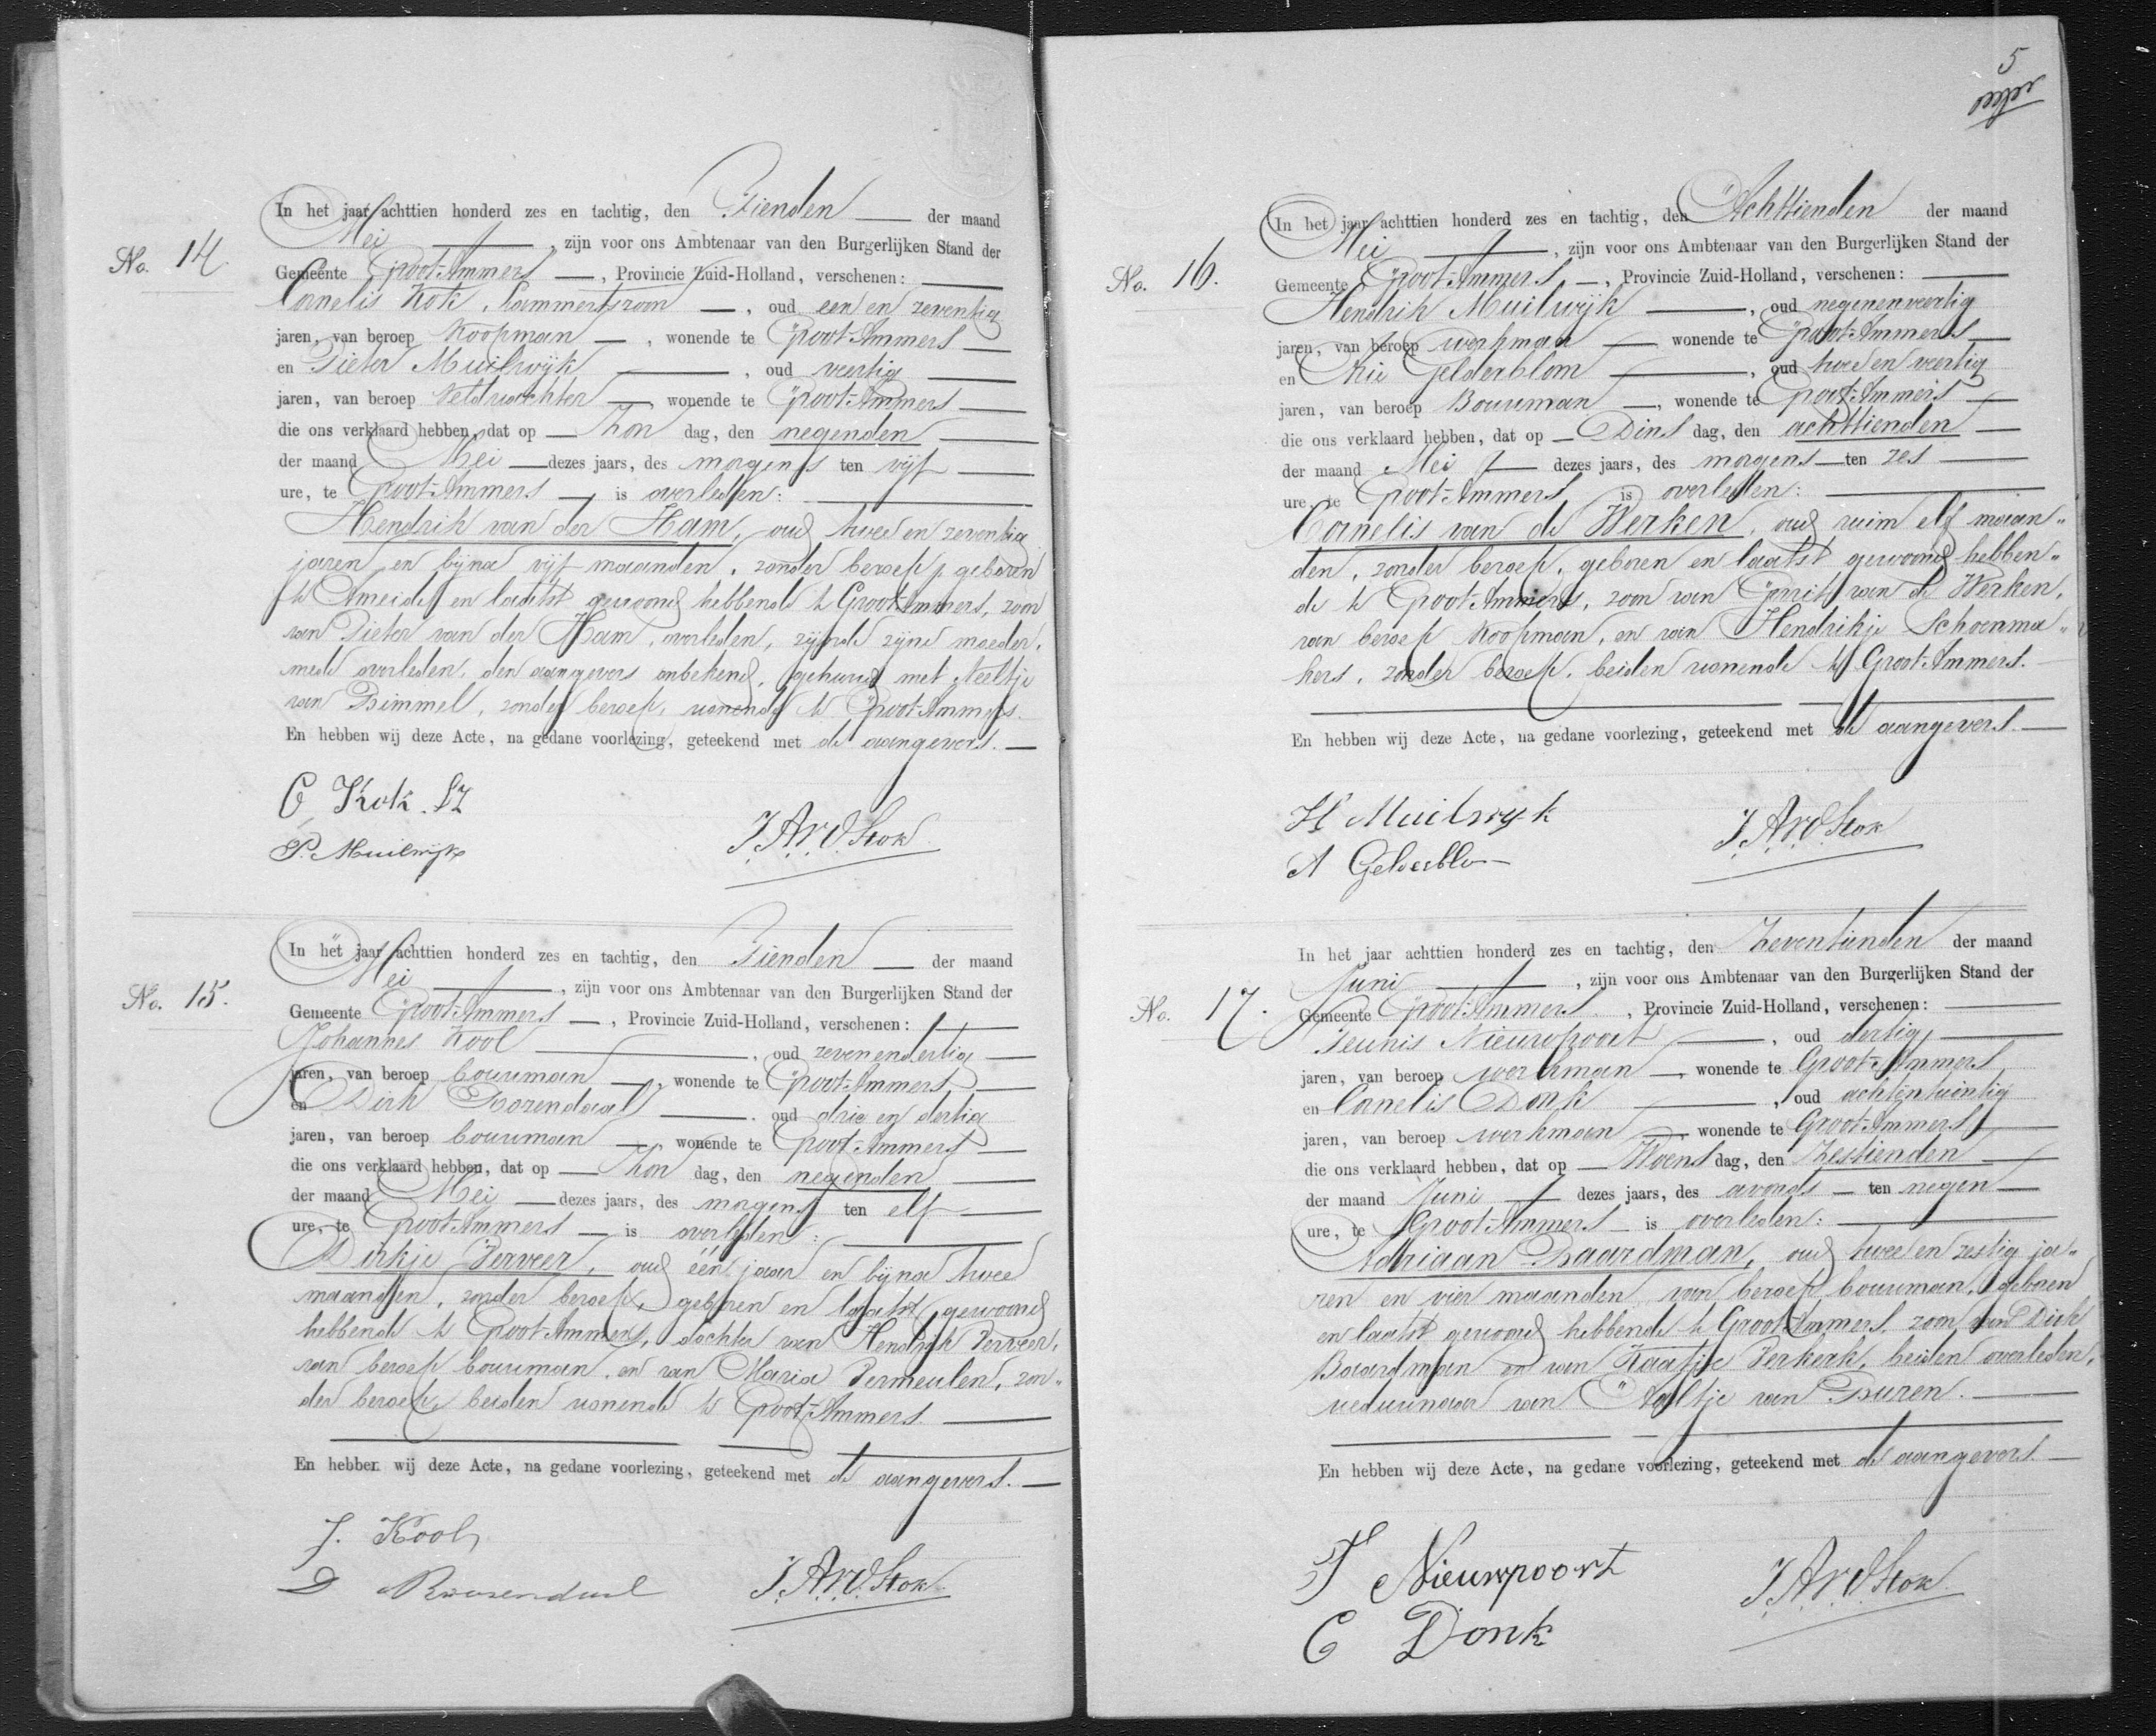 In het jaar achttien honderd zes en tachtig, den Tienden der maand
Mei, zijn voor ons Ambtenaar van den Burgerlijken Stand der
No. 14
Gemeente Groot-Ammers, Provincie Zuid-Holland, verschenen:
Cornelis Kok, Lammertszoon, oud een en zeventig
jaren, van beroep Koopman, wonende te Groot-Ammers
en Pieter Muilwijk, oud veertig
jaren, van beroep Veldwachter wonende te Groot-Ammers
die ons verklaard hebben, dat op Zon dag, den negenden
der maand Mei dezes jaars, des morgens ten vijf
ure, te Groot-Ammers is overleden:
Hendrik van der Ham, oud twee en zeventig
jaren en bijna vijf maanden, zonder beroep, geboren
te Ameide en laatst gewoond hebbende te Groot-Ammers, zoon
van Pieter van der Ham, overleden, zijnde zijne moeder,
mede overleden, den aangevers onbekend, gehuwd met Neeltje
van Bimmel, zonder beroep, wonende te Groot-Ammers.
En hebben wij deze Acte, na gedane voorlezing, geteekend met de aangevers.
C Kok. LZ
P. Muilwijk
J.A.V.D. Stok
In het jaar achttien honderd zes en tachtig, den Tienden der maand
Mei, zijn voor ons Ambtenaar van den Burgerlijken Stand der
No. 15.
Gemeente Groot-Ammers, Provincie Zuid-Holland, verschenen:
Johannes Kool, oud zevenendertig
jaren, van beroep bouwman, wonende te Groot-Ammers,
en Dirk Rozendaal, oud drie en dertig
jaren, van beroep bouwman, wonende te Groot-Ammers
die ons verklaard hebben, dat op Zon dag, den negenden
der maand Mei dezes jaars, des morgens ten elf
ure, te Groot-Ammers is overleden:
Dirkje Terveer, oud één jaar en bijna twee
maanden, zonder beroep, geboren en laatst gewoond
hebbende te Groot-Ammers, dochter van Hendrik Terveer,
van beroep bouwman, en van Maria Vermeulen, zon„
der beroep, beiden wonende te Groot-Ammers
En hebben wij deze Acte, na gedane voorlezing, geteekend met de aangevers.
J. Kool
D Roosendaal
J.A.V.D. Stok
5
In het jaar achttien honderd zes en tachtig, den Achttienden der maand
Mei, zijn voor ons Ambtenaar van den Burgerlijken Stand der
No. 16.
Gemeente Groot-Ammers, Provincie Zuid-Holland, verschenen:
Hendrik Muilwijk, oud negenenveertig
jaren, van beroep werkman wonende te Groot-Ammers
en Arie Gelderblom, oud twee en veertig
jaren, van beroep Bouwman, wonende te Groot-Ammers
die ons verklaard hebben, dat op Dins dag, den achttienden
der maand Mei dezes jaars, des morgens ten zes
ure, te Groot-Ammers is overleden:
Cornelis van de Werken, oud ruim elf maan„
den, zonder beroep, geboren en laatst gewoond hebben„
de te Groot-Ammers, zoon van Gerrit van de Werken,
van beroep Koopman, en van Hendrikje Schoenma„
kers, zonder beroep, beiden wonende te Groot-Ammers.
En hebben wij deze Acte, na gedane voorlezing, geteekend met de aangevers.
H Muilwyk
A Gelderblom
J.A.V.D. Stok
In het jaar achttien honderd zes en tachtig, den Zeventienden der maand
Juni, zijn voor ons Ambtenaar van den Burgerlijken Stand der
No. 17.
Gemeente Groot-Ammers, Provincie Zuid-Holland, verschenen:
Teunis Nieuwpoort, oud dertig
jaren, van beroep werkman, wonende te Groot-Ammers
en Cornelis Donk, oud achtentwintig
jaren, van beroep werkman, wonende te Groot-Ammers
die ons verklaard hebben, dat op Woens dag, den Zestienden
der maand Juni dezes jaars, des avonds ten negen
ure, te Groot-Ammers is overleden:
Adriaan Baardman, oud twee en zestig ja„
ren en vier maanden, van beroep bouwman, geboren
en laatst gewoond hebbende te Groot-Ammers, zoon van Dirk
Baardman en van Kaatje Verkerk, beiden overleden,
weduwnaar van Aaltje van Buren.
En hebben wij deze Acte, na gedane voorlezing, geteekend met de aangevers.
T Nieuwpoort
C Donk
J.A.V.D. Stok